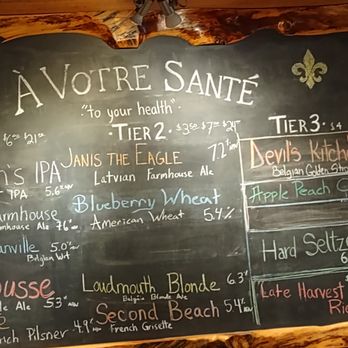 À VOTRE SANTÉ
"to your health"
TIER 2. $3.50 $7.50 $21.50
TIER 3. $4
JANIS THE EAGLE 7.2%
Latvian Farmhouse Ale
Blueberry Wheat
American Wheat 5.4%
Loudmouth Blonde 6.3%
Belgian Blonde Ale
Second Beach 5.4%
French Grisette
's IPA
IPA 5.6%
armhouse
Ale 7.6%
anville 5.0%
Belgian Wit
ousse
Ale 5.3%
ch Pilsner 4.9%
Devil's Kitch
Belgian Golden Stro
Apple Peach C
Hard Seltze
6
Late Harvest
Rie